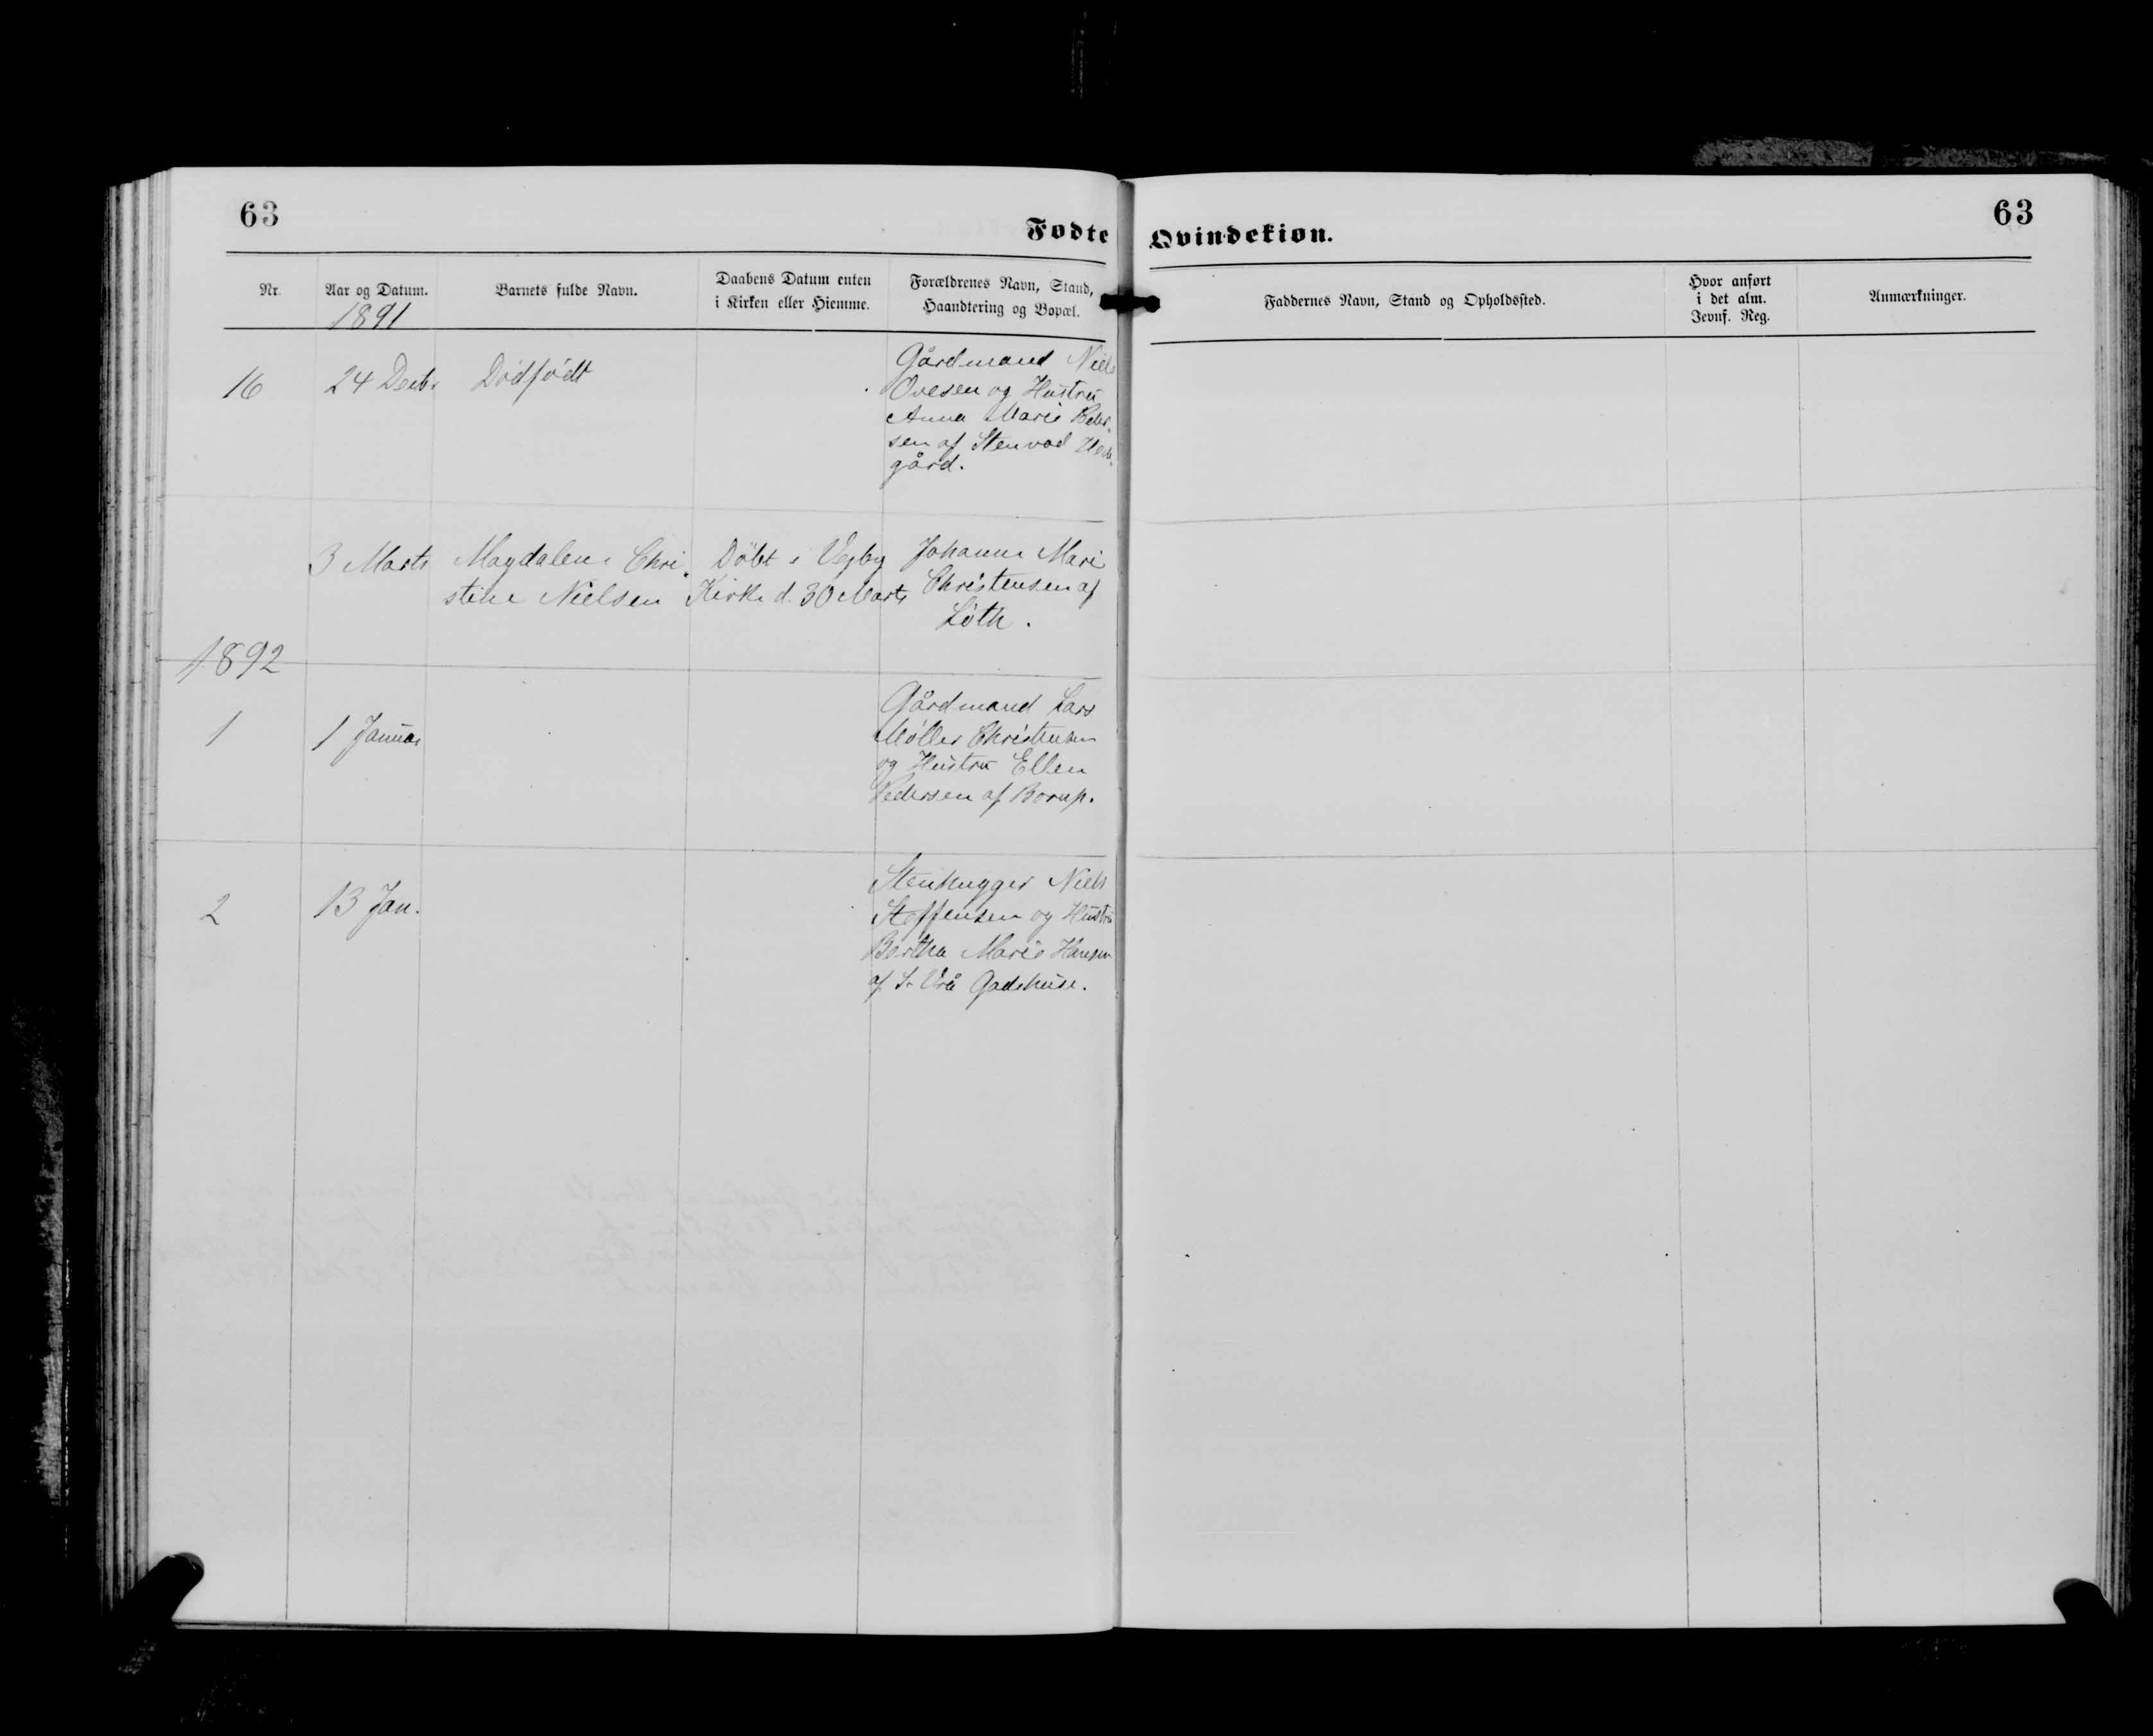 63
63
Fodte
Qvindekion.
Nr.
Aar og Datum.
Barnets fulde Navn.
Daabens Datum enten
i Kirken eller Hiemme.
Forældrenes Navn, Stand,
Haandtering og Bopæl.
Faddernes Navn, Stand og Opholdssted.
Hvor anført
i det alm.
Jevnf. Reg.
Anmærkninger.
1891
16
24 Decbr
Dödfödt
Gårdmand Niels
Ovesen og Hustru
Anna Marie Peder-
sen af Stenvad
gård.
3 Marts
Magdalene Chri-
stine Nielsen
Döbt i Vejby
Kirke d. 30 Marts
Johanne Marie
Christensen af
Löth.
1892
1
1 Januar
Gårdmand Lars
Möller Christensen
og Hustru Ellen
Pedersen af Borup.
2
13 Jan.
Stenhugger Niels
Steffensen og Hustru
Bertha Marie Hansen
af S. Vrå Gadehuse.